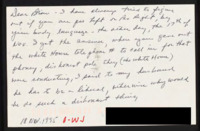 Dear Brian - I have always tried to figure
out if you are far left or the Right, by
your body language. The other day, the 7th of
Nov. I got the answer when you gave out
the White House telephone # to call in for that
phoney, dishonest poll they (the White House)
were conducting, I said to my husband
he has to be a liberal, otherwise why would
he do such a dishonest thing
18 NOV. 1995 I-WJ